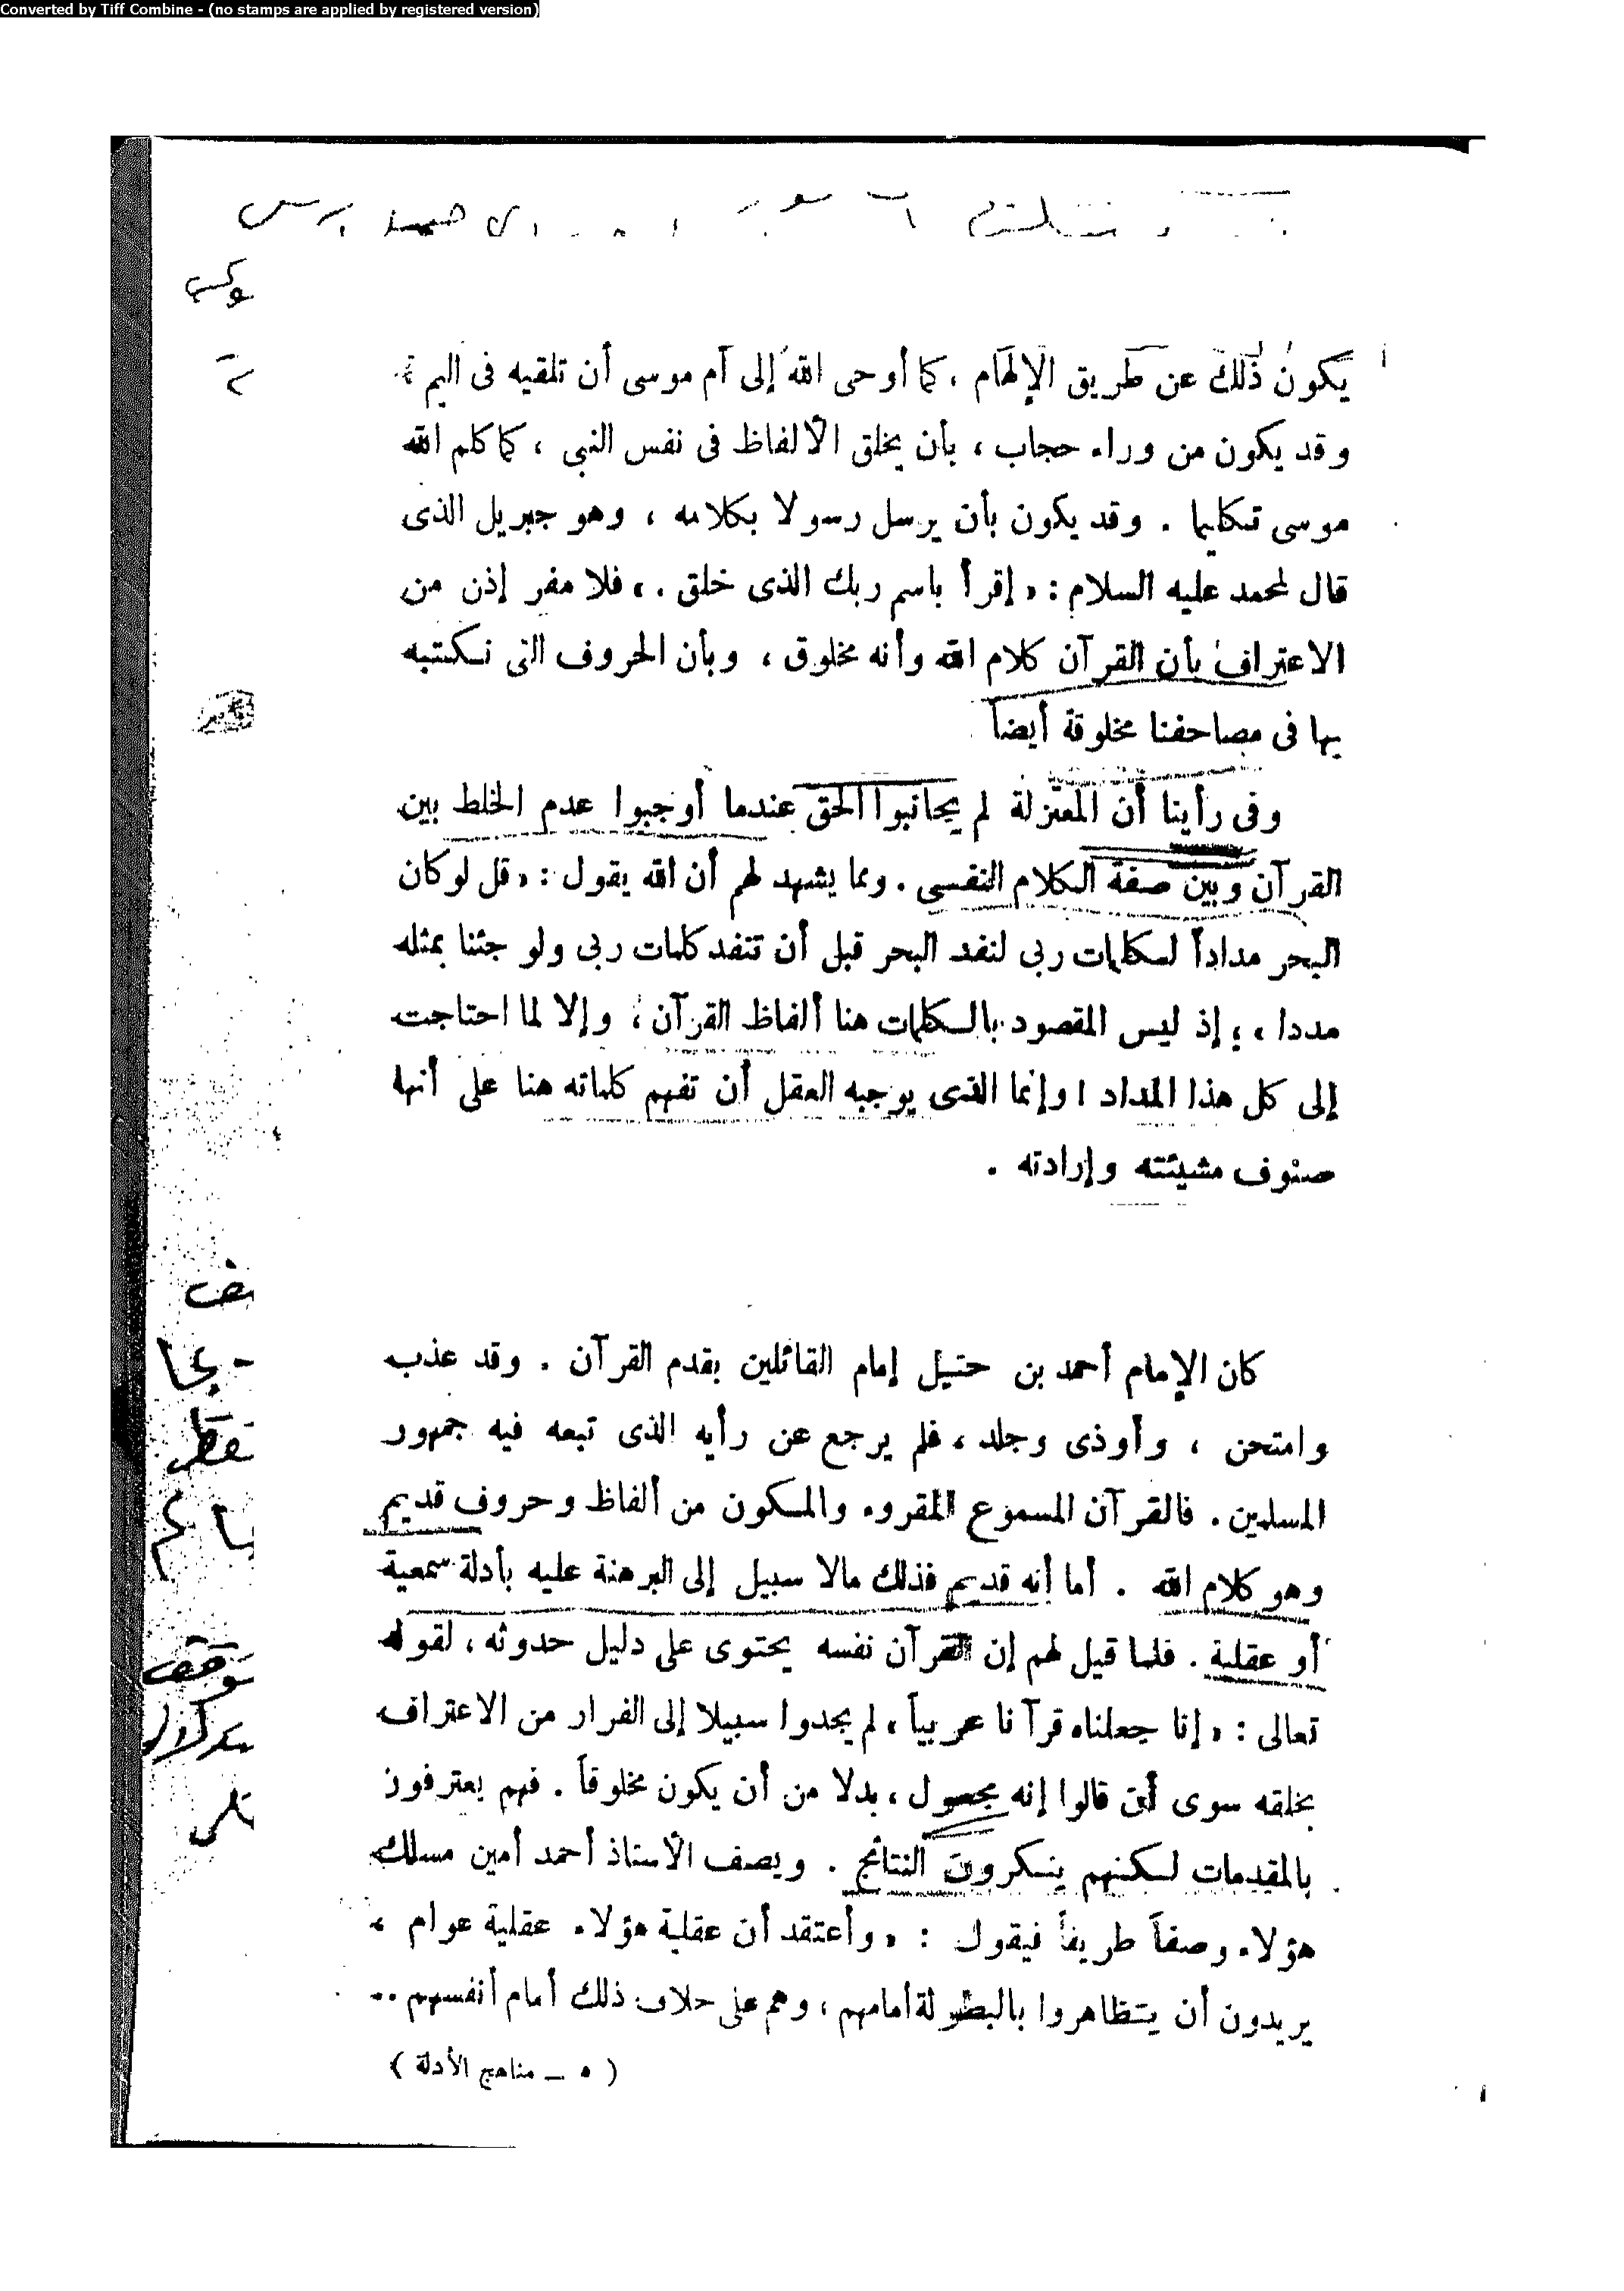 Converted by Tiff Combine - (no stamps are applied by registered version)
يكون ذلك عن طريق الإلهام ، كما أوحى الله إلى أم موسى أن تلقيه فى اليم ؛
وقد يكون من وراء حجاب ، بأن يخلق الألفاظ فى نفس النبى ، كما كلم الله
موسى تكليما . وقد يكون بأن يرسل رسولا بكلامه ، وهو جبريل الذى
قال لمحمد عليه السلام : « إقرأ باسم ربك الذى خلق . » فلا مفر إذن من
الاعتراف بأن القرآن كلام الله وأنه مخلوق ، وبأن الحروف التى نكتبه
بها فى مصاحفنا مخلوقة أيضاً
وفى رأينا أن المعتزلة لم يجانبوا الحق عندما أوجبوا عدم الخلط بين
القرآن وبين صفة الكلام النفسى . ومما يشهد لهم أن الله يقول : « قل لو كان
البحر مداداً لكلمات ربى لنفد البحر قبل أن تنفد كلمات ربى ولو جئنا بمثله
مددا » ؛ إذ ليس المقصود بالكلمات هنا ألفاظ القرآن ، وإلا لما احتاجت
إلى كل هذا المداد ! وإنما الذى يوجبه العقل أن تفهم كلماته هنا على أنها
صنوف مشيئته وإرادته .
كان الإمام أحمد بن حنبل إمام القائلين بقدم القرآن . وقد عذب
وامتحن ، وأوذى وجلد ، فلم يرجع عن رأيه الذى تبعه فيه جمهور
المسلمين . فالقرآن المسموع المقروء والمكون من ألفاظ وحروف قديم
وهو كلام الله . أما أنه قديم فذلك مالا سبيل إلى البرهنة عليه بأدلة سمعية
أو عقلية . فلما قيل لهم إن القرآن نفسه يحتوى على دليل حدوثه ، لقوله
تعالى : « إنا جعلناه قرآنا عربياً » لم يجدوا سبيلا إلى الفرار من الاعتراف
بخلقه سوى أن قالوا إنه مجعول ، بدلا من أن يكون مخلوقاً . فهم يعترفون
بالمقدمات لكنهم ينكرون النتائج . ويصف الأستاذ أحمد أمين مسلك
هؤلاء وصفاً طريفاً فيقول : « وأعتقد أن عقلية هؤلاء عقلية عوام ،
يريدون أن يتظاهروا بالبطولة أمامهم ، وهم على خلاف ذلك أمام أنفسهم ..
( ٥ ــ مناهج الأدلة )